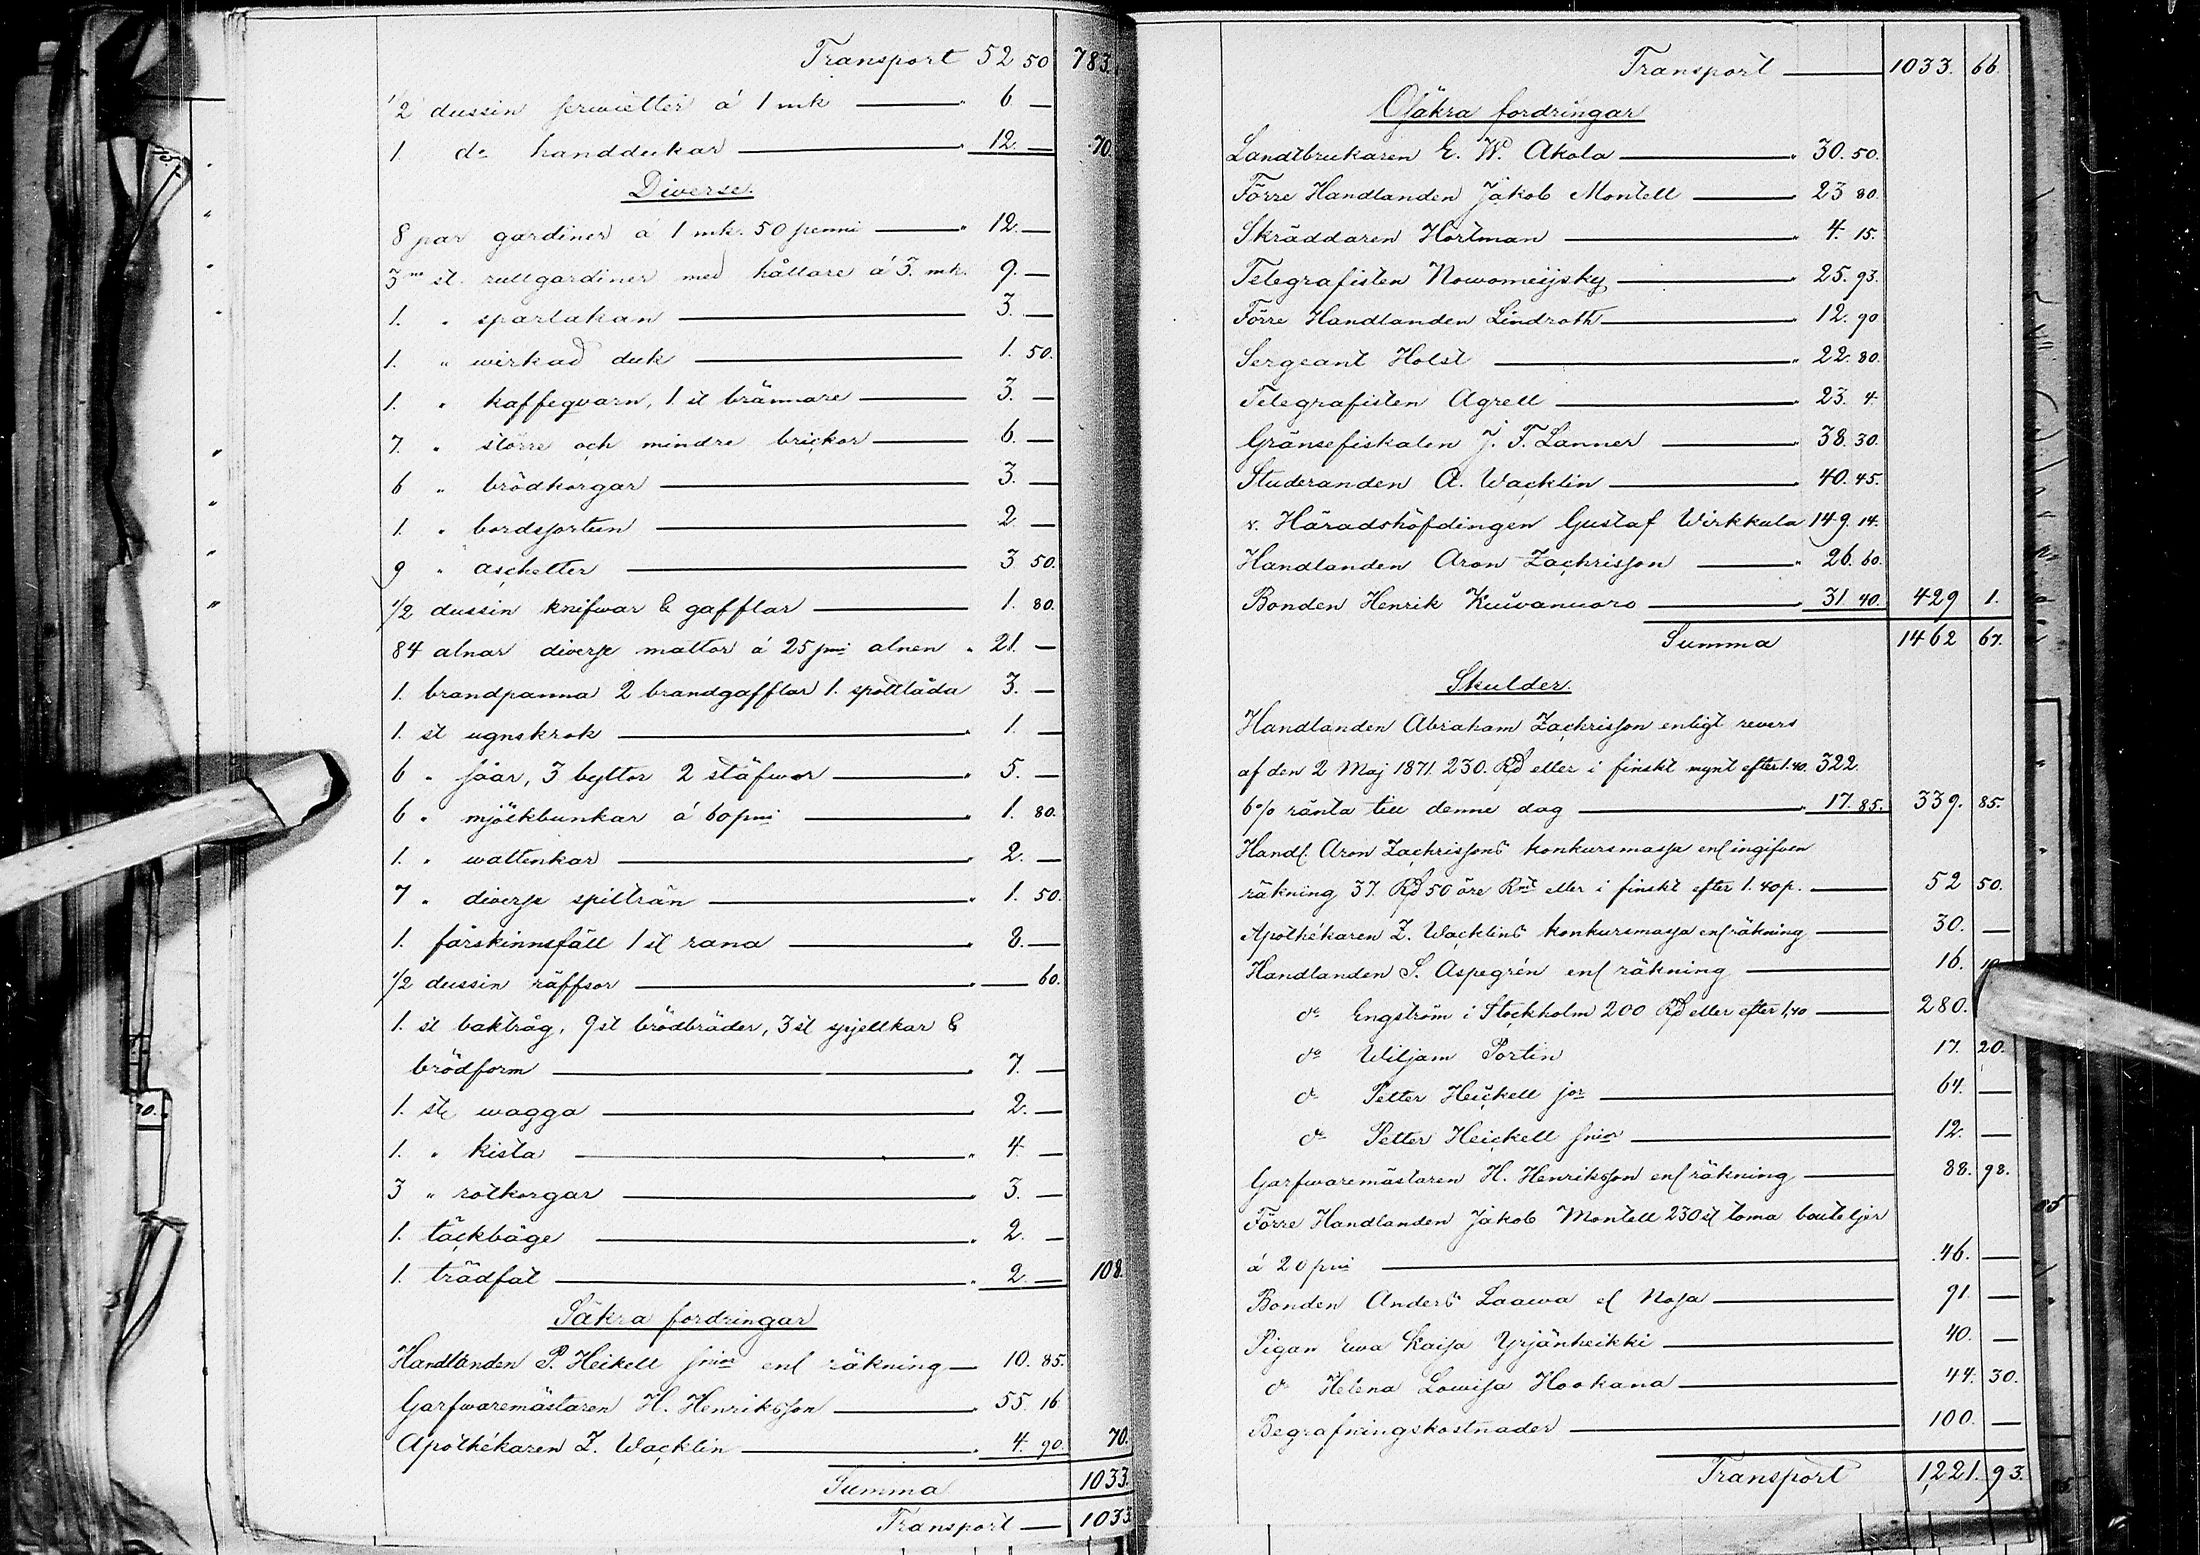 Transport 52 50 783.
1/2 dussin serwietter á 1 mk — 6 —
1 do handdukar — 12. — 70.
Diverse.
8 par gardiner á 1 mk. 50 penni — 12. —
3ne st. rullgardiner med hållare á 3. mk. 9. —
1. " sparlakan — 3. —
1. " wirkad duk — 1. 50.
1. " kaffeqvarn, 1 st brännare — 3. —
7. " större och mindre brickor — 6. —
6 " brödkorgar — 3. —
1. " bordssorteen — 2 —
9 " aschetter — 3 50.
1/2 dussin knifwar & gafflar — 1. 80.
84 alnar diverse mattor á 25 pni alnen " 21. —
1. brandpanna 2 brandgafflar 1. spottlåda 3. —
1. st ugnskrok — 1. —
6 " såar, 3 byttor 2 stäfwor — 5. —
6 " mjölkbunkar á 60 pni — 1. 80.
1. " wattenkar — 2. —
7 " diverse spilträn — 1. 50.
1. fårskinnsfäll 1 st rana — 8. —
1/2 dussin räffsor — 60.
1. st baktråg, 9 st brödbräder, 3 st spjellkar &
brödform — 7. —
1. st wagga — 2. —
1. " kista — 4 —
3 " rotkorgar — 3. —
1. täckbåge — 2. —
1. trädfat — 2. — 108.
Säkra fordringar
Handlanden P. Heikell snior enl räkning — 10. 85.
Garfwaremästaren H. Henriksson — 55. 16
Apothékaren Z. Wacklin — 4. 90. 70.
Summa 1033.
Transport — 1033
Transport — 1033. 66.
Osäkra fordringar
Landtbrukaren E. W. Akola — 30. 50.
Förre Handlanden Jakob Montell — 23 80.
Skräddaren Hortman — 4. 15.
Telegrafisten Nowomeijsky — 25. 93.
Förre Handlanden Lindroth — 12. 90
Sergeant Holst — 22. 80.
Telegrafisten Agrell — 23. 4.
Gränsefiskalen J. F. Lanner — 38. 30.
Studeranden A. Wacklin — 40. 45.
v. Häradshöfdingen Gustaf Wirkkula 149. 14.
Handlanden Aron Zachrisson — 26. 60.
Bonden Henrik Kuiwanuoro — 31. 40. 429 1.
Summa 1462 67.
Skulder.
Handlanden Abraham Zachrisson enligt revers
af den 2 Maj 1871. 230. Rd eller i finskt mynt efter 1.40. 322.
6% ränta till denne dag — 17. 85. 339. 85.
Handl. Aron Zachrissons konkursmassa enl ingifven
räkning 37. Rd 50 öre Rmt eller i finskt efter 1. 40 p. — 52 50.
Apothékaren Z. Wacklins konkursmassa enl räkning — 30. —
Handlanden S. Aspegrén enl räkning — 16. 10
do Engström i Stockholm 200 Rd eller efter 1,40 — 280.
do Wiljam Portin 17. 20.
do Petter Heickell jor — 64. —
do Petter Heickell snior — 12. —
Garfwaremästaren H. Henriksson enl räkning — 88. 98.
Förre Handlanden Jakob Montell 230 st toma bouteljer
á 20 pni — 46. —
Bonden Anders Laawa el Nosa — 91. —
Pigan Ewa Kaisa Yrjänheikki — 40. —
do Helena Lowisa Hookana — 44. 30.
Begrafningskostnader — 100. —
Transport 1,221. 93.